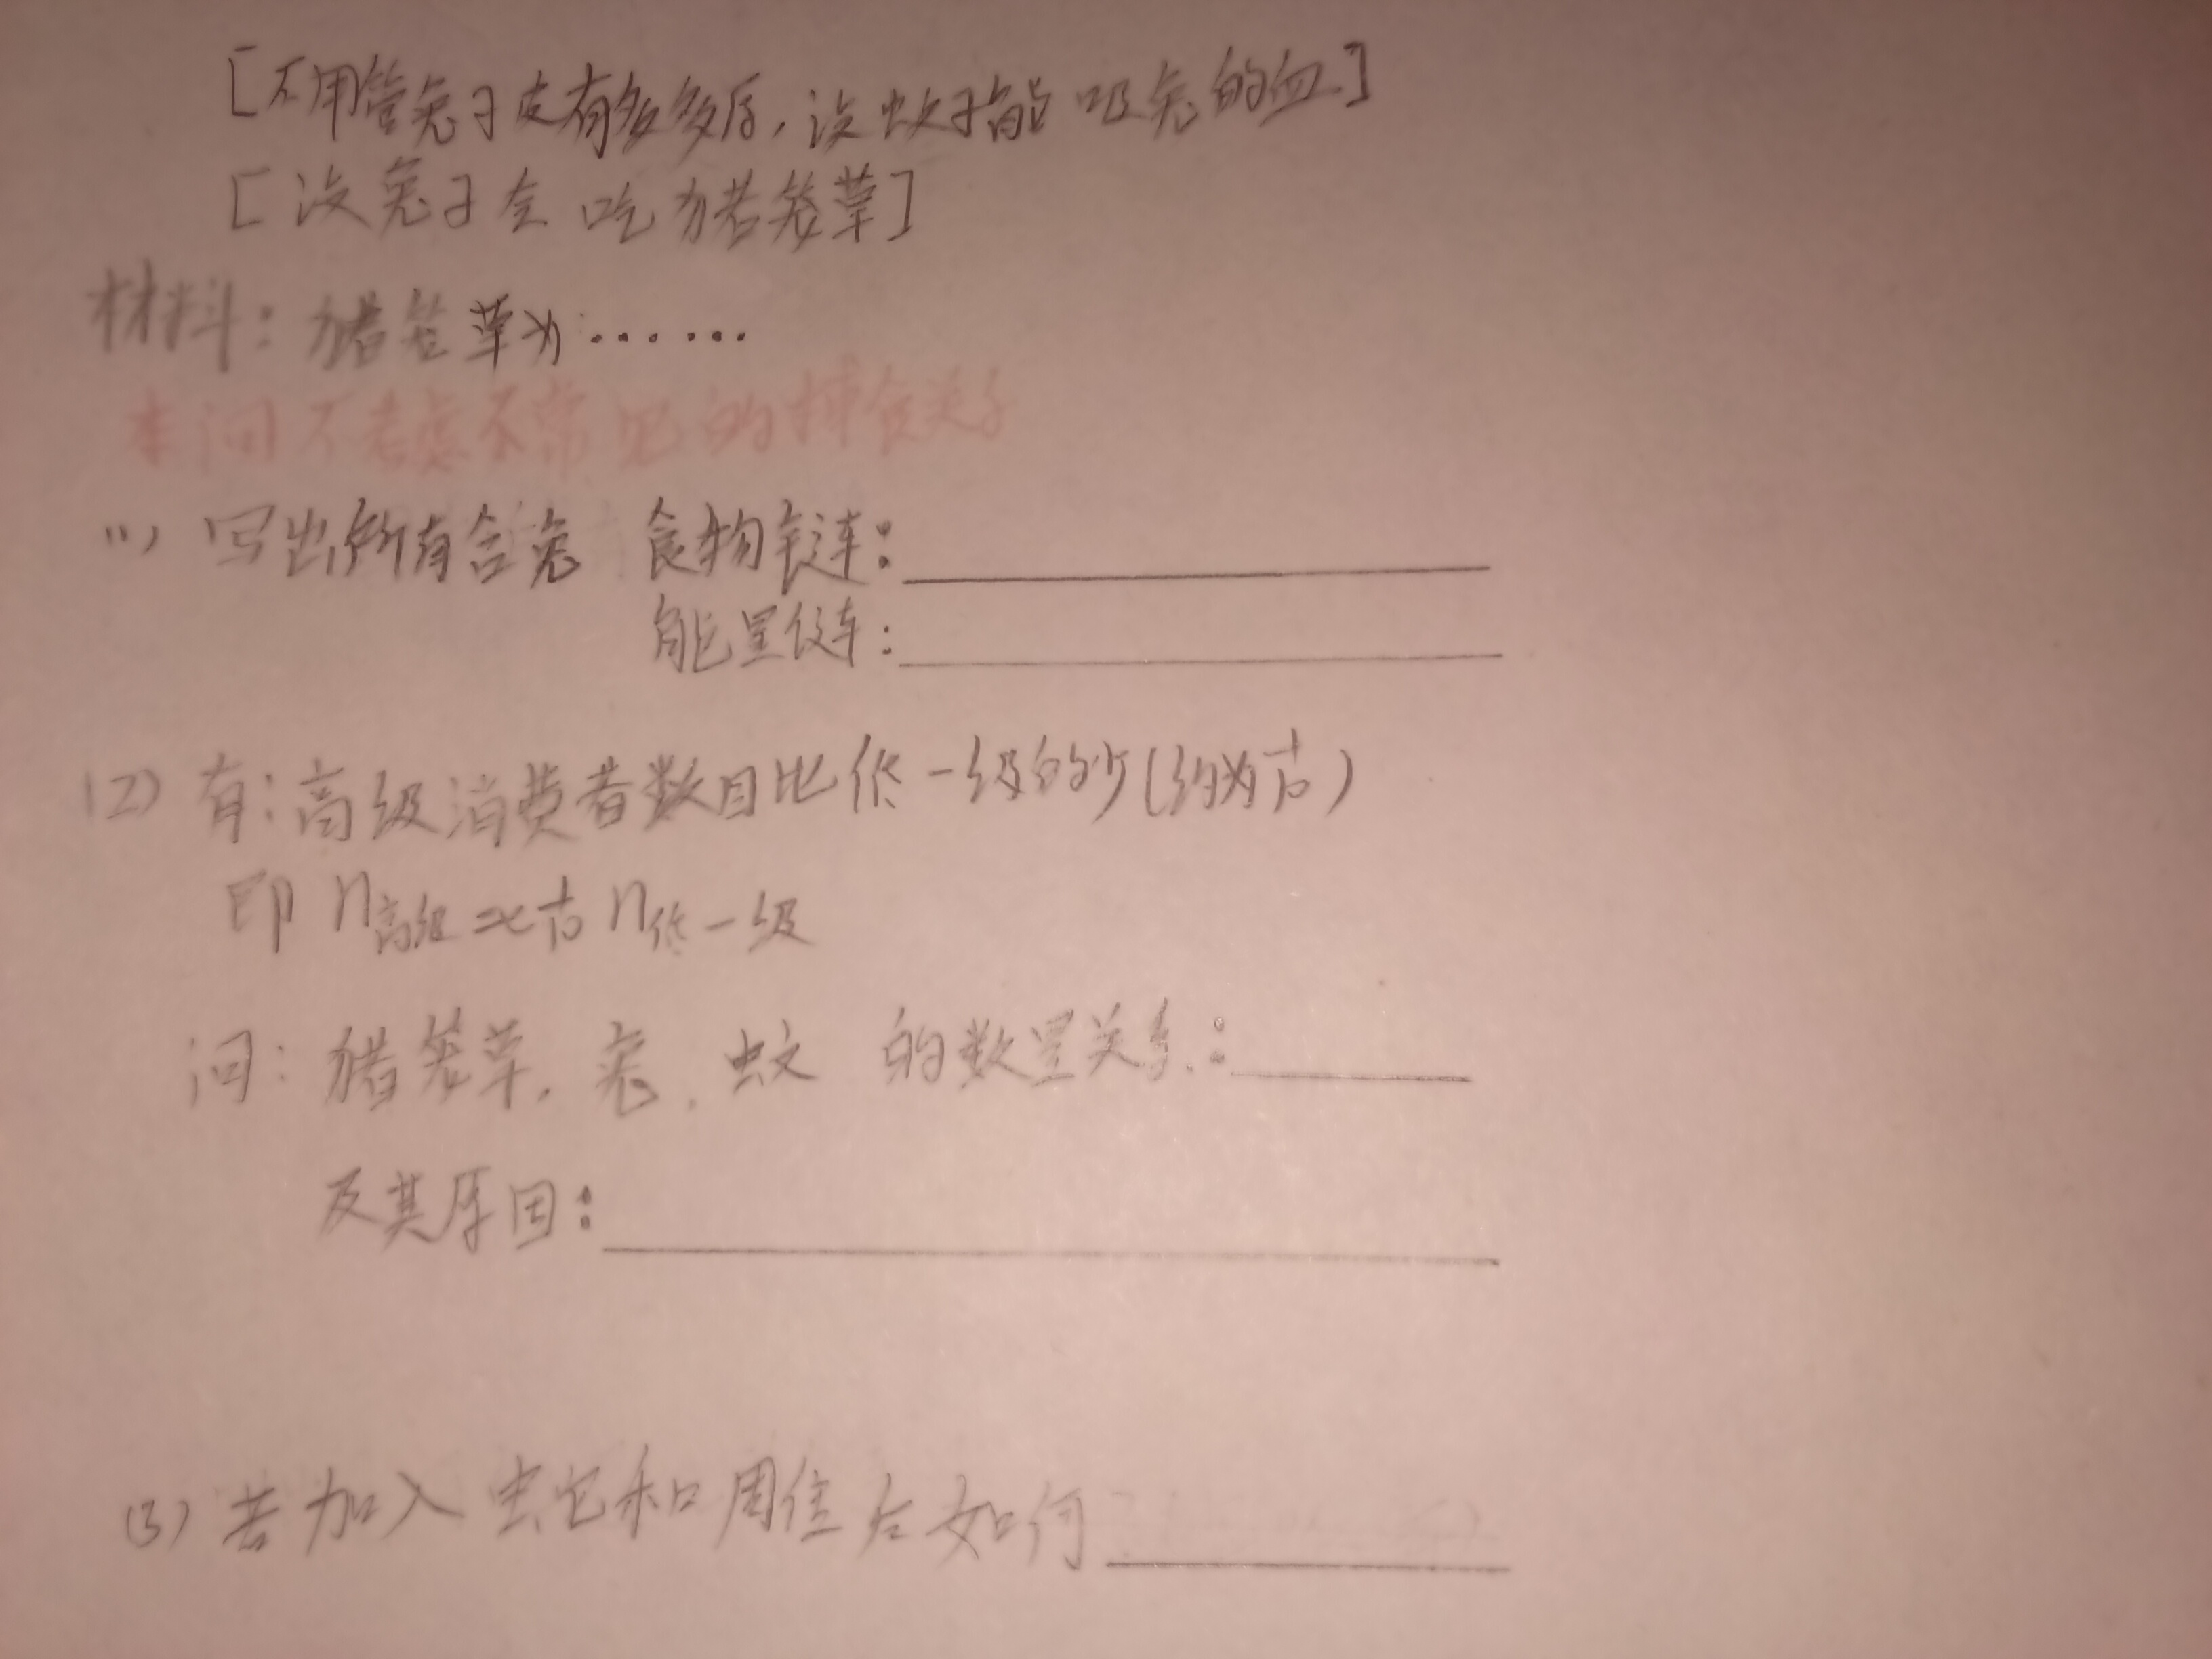 [不用管兔子皮有多多厚,设蚊子能吸兔的血]
[设兔子会吃猪笼草]
材料:猪笼草为……
本问不考虑不常见的捕食关系
(1) 写出所有含兔 食物链:
能量链:
(2) 有:高级消费者数目比低一级的少(约为1/10)
即 n高级≈1/10 n低一级
问:猪笼草,兔,蚊 的数量关系:
及其原因:
(3) 若加入蛇和周佳后如何